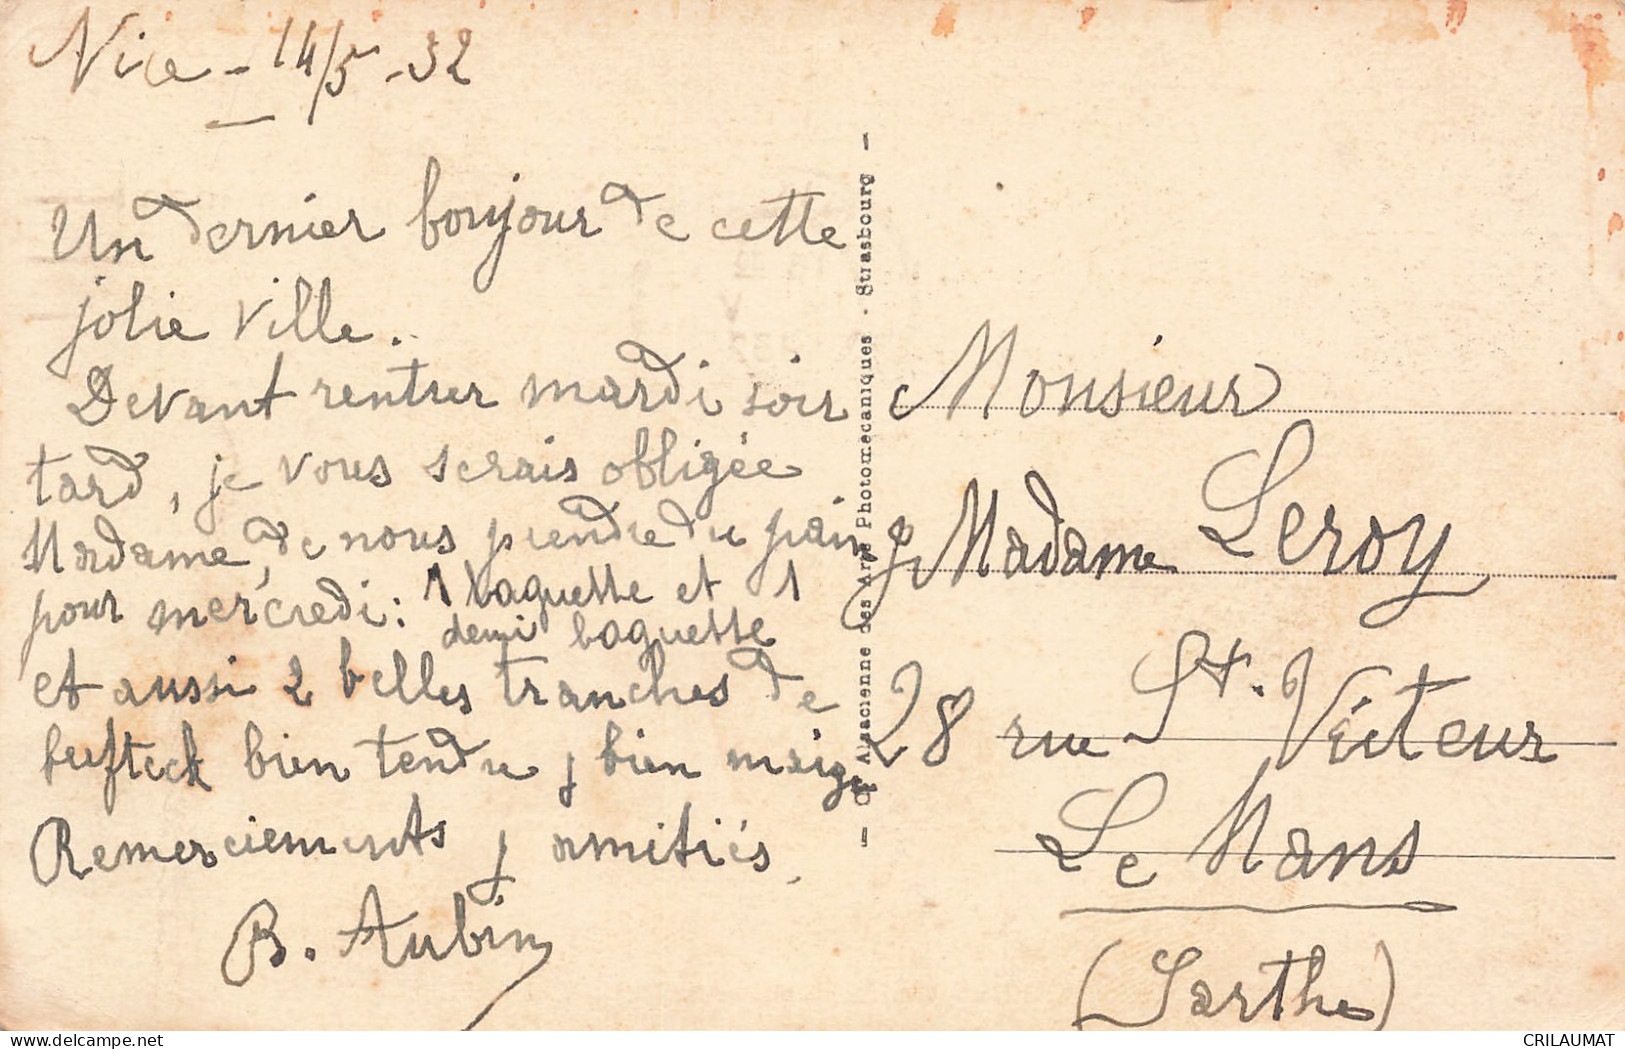 Nice - 14/5 - 32
Un dernier bonjour de cette
jolie ville.
Devant rentrer mardi soir
tard, je vous serais obligée
Madame, de nous prendre du pain
pour mercredi : 1 baguette et 1
demi baguette
et aussi 2 belles tranches de
beefteck bien tendre & bien maigre
Remerciements & amitiés.
B. Aubin
— Cie Alsacienne des Arts Photomécaniques - Strasbourg —
Monsieur
& Madame Leroy
28 rue St. Victeur
Le Mans
(Sarthe)
delcampe.net
CRILAUMAT